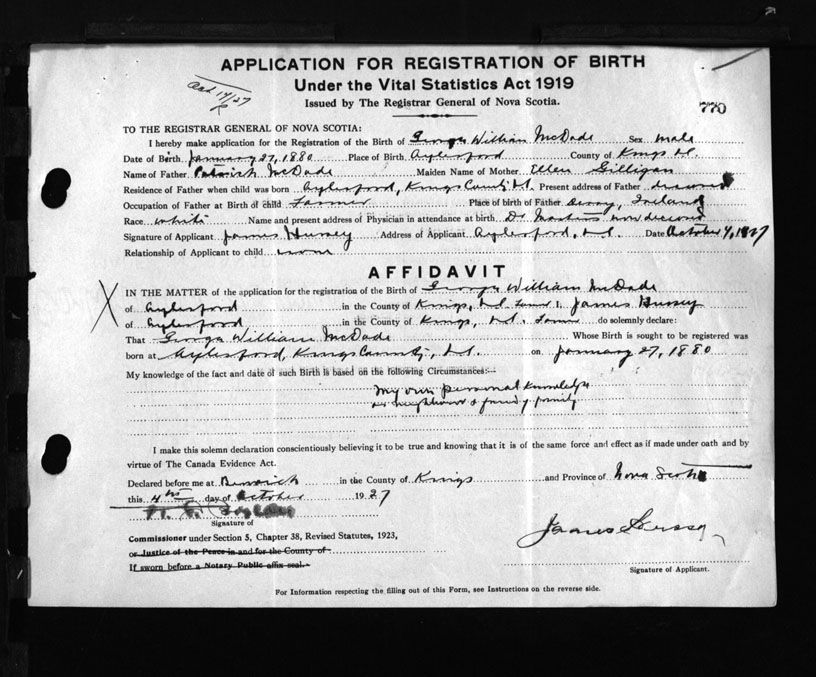 APPLICATION FOR REGISTRATION OF BIRTH
Under the Vital Statistics Act 1919
Issued by The Registrar General of Nova Scotia.
Oct 14/27
770
TO THE REGISTRAR GENERAL OF NOVA SCOTIA:
I hereby make application for the Registration of the Birth of George William McDade Sex male
Date of Birth January 27, 1880 Place of Birth Aylesford County of Kings N.S.
Name of Father Patrick McDade Maiden Name of Mother Ellen Gilligan
Residence of Father when child was born Aylesford, Kings County N.S. Present address of Father deceased
Occupation of Father at Birth of child Farmer Place of birth of Father Derry, Ireland
Race white Name and present address of Physician in attendance at birth Dr now deceased
Signature of Applicant James Hursey Address of Applicant Aylesford, N.S. Date October 4, 1927
Relationship of Applicant to child none
AFFIDAVIT
IN THE MATTER of the application for the registration of the Birth of George William McDade
of Aylesford in the County of Kings, N.S. I, James Hursey
of Aylesford in the County of Kings, N.S. do solemnly declare:
That George William McDade Whose Birth is sought to be registered was
born at Aylesford, Kings County, N.S. on January 27, 1880
My knowledge of the fact and date of such Birth is based on the following Circumstances:—
My own personal knowledge
as neighbour & friend of family
I make this solemn declaration conscientiously believing it to be true and knowing that it is of the same force and effect as if made under oath and by
virtue of The Canada Evidence Act.
Declared before me at Berwick in the County of Kings and Province of Nova Scotia
this 4th day of October 1927
Signature of
Commissioner under Section 5, Chapter 38, Revised Statutes, 1923,
or Justice of the Peace in and for the County of
If sworn before a Notary Public affix seal.
James Hursey
Signature of Applicant.
For Information respecting the filling out of this Form, see Instructions on the reverse side.